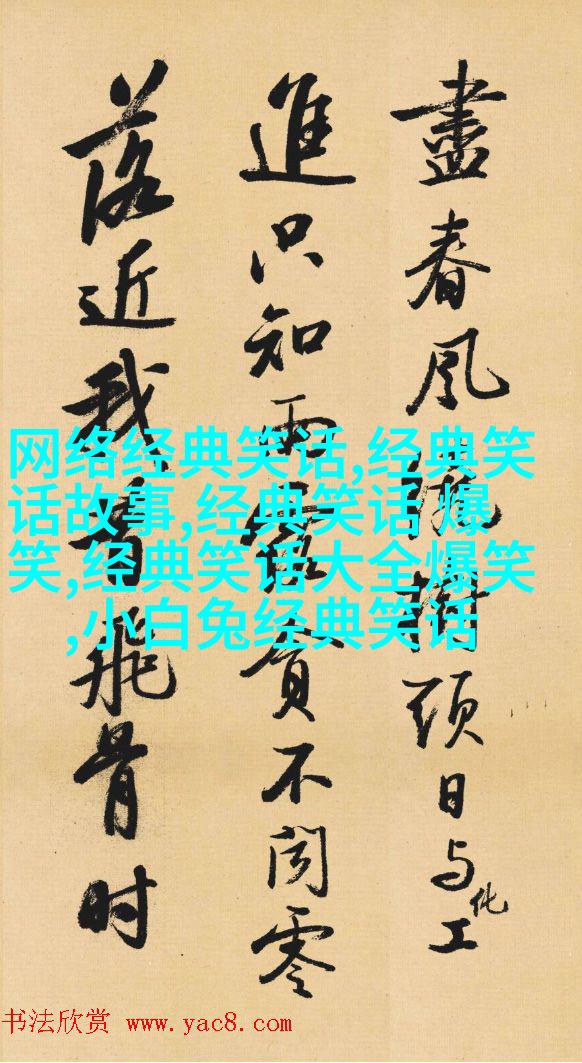 盡春風繞樹頭日与化工
進只知雨露貪不聞零
落近我昔飛骨时
网络经典笑话,经典笑
话故事,经典笑话 爆
笑,经典笑话大全爆笑
,小白兔经典笑话
书法欣赏 www.yac8.com